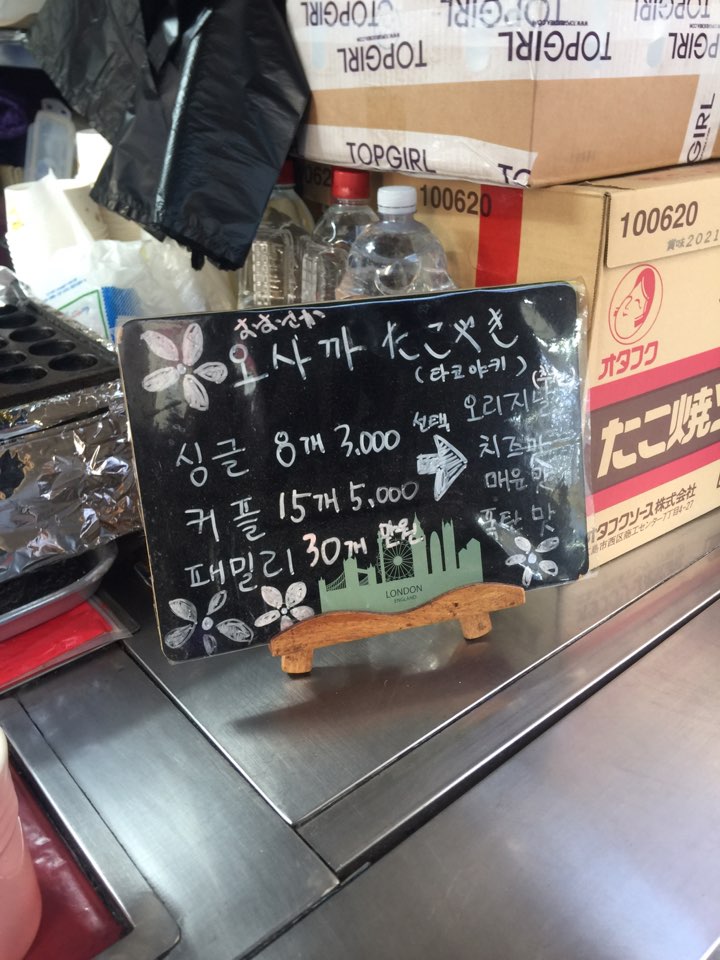 TOPGIRL TOPGIRL TOPGIRL
TOPGIRL
TOPGIRL
100620
100620
賞味2021
オタフク
たこ焼
オタフクソース株式会社
島市西区商工センター7丁目4-27
おおさか
오사까 たこやき
(타코야키)
싱글 8개 3,000
커플 15개 5,000
패밀리 30개 만원
선택
오리지널
치즈맛
매운맛
폭탄 맛
LONDON
ENGLAND